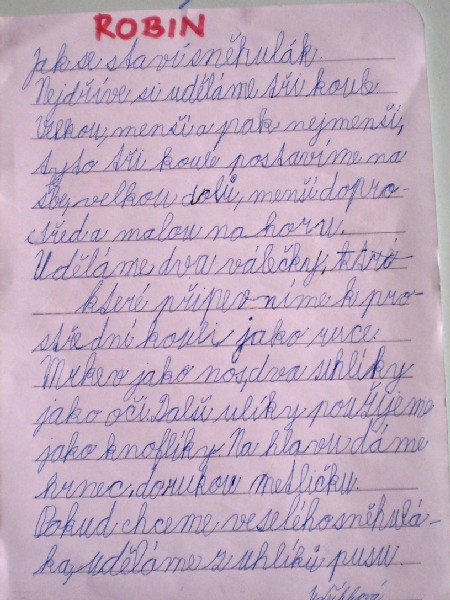 ROBIN
Jak se staví sněhulák.
Nejdříve si uděláme tři koule
Velkou, menší a pak nejmenší,
tyto tři koule postavíme na
sbe, velkou dolů, menší dopro-
střed a malou na horu.
Uděláme dva válečky,
které připevníme k pro-
střední kouli jako ruce.
Mrkev jako nos, dva uhlíky
jako oči. Další ulíky použijeme
jako knoflíky. Na hlavu dáme
hrnec, do rukou metličku.
Pokud chceme veselého sněhulá-
ka, uděláme z uhlíků pusu.